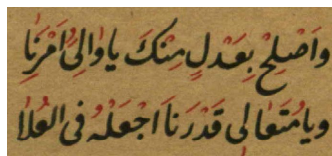 وَاَصْلِحْ بِعَدْلٍ مِنْكَ يَا وَالِىُ اَمْرَنَا
وَيَا مُتَعَالِى قَدْرَنَا اجْعَلْهُ فِى الْعُلَا